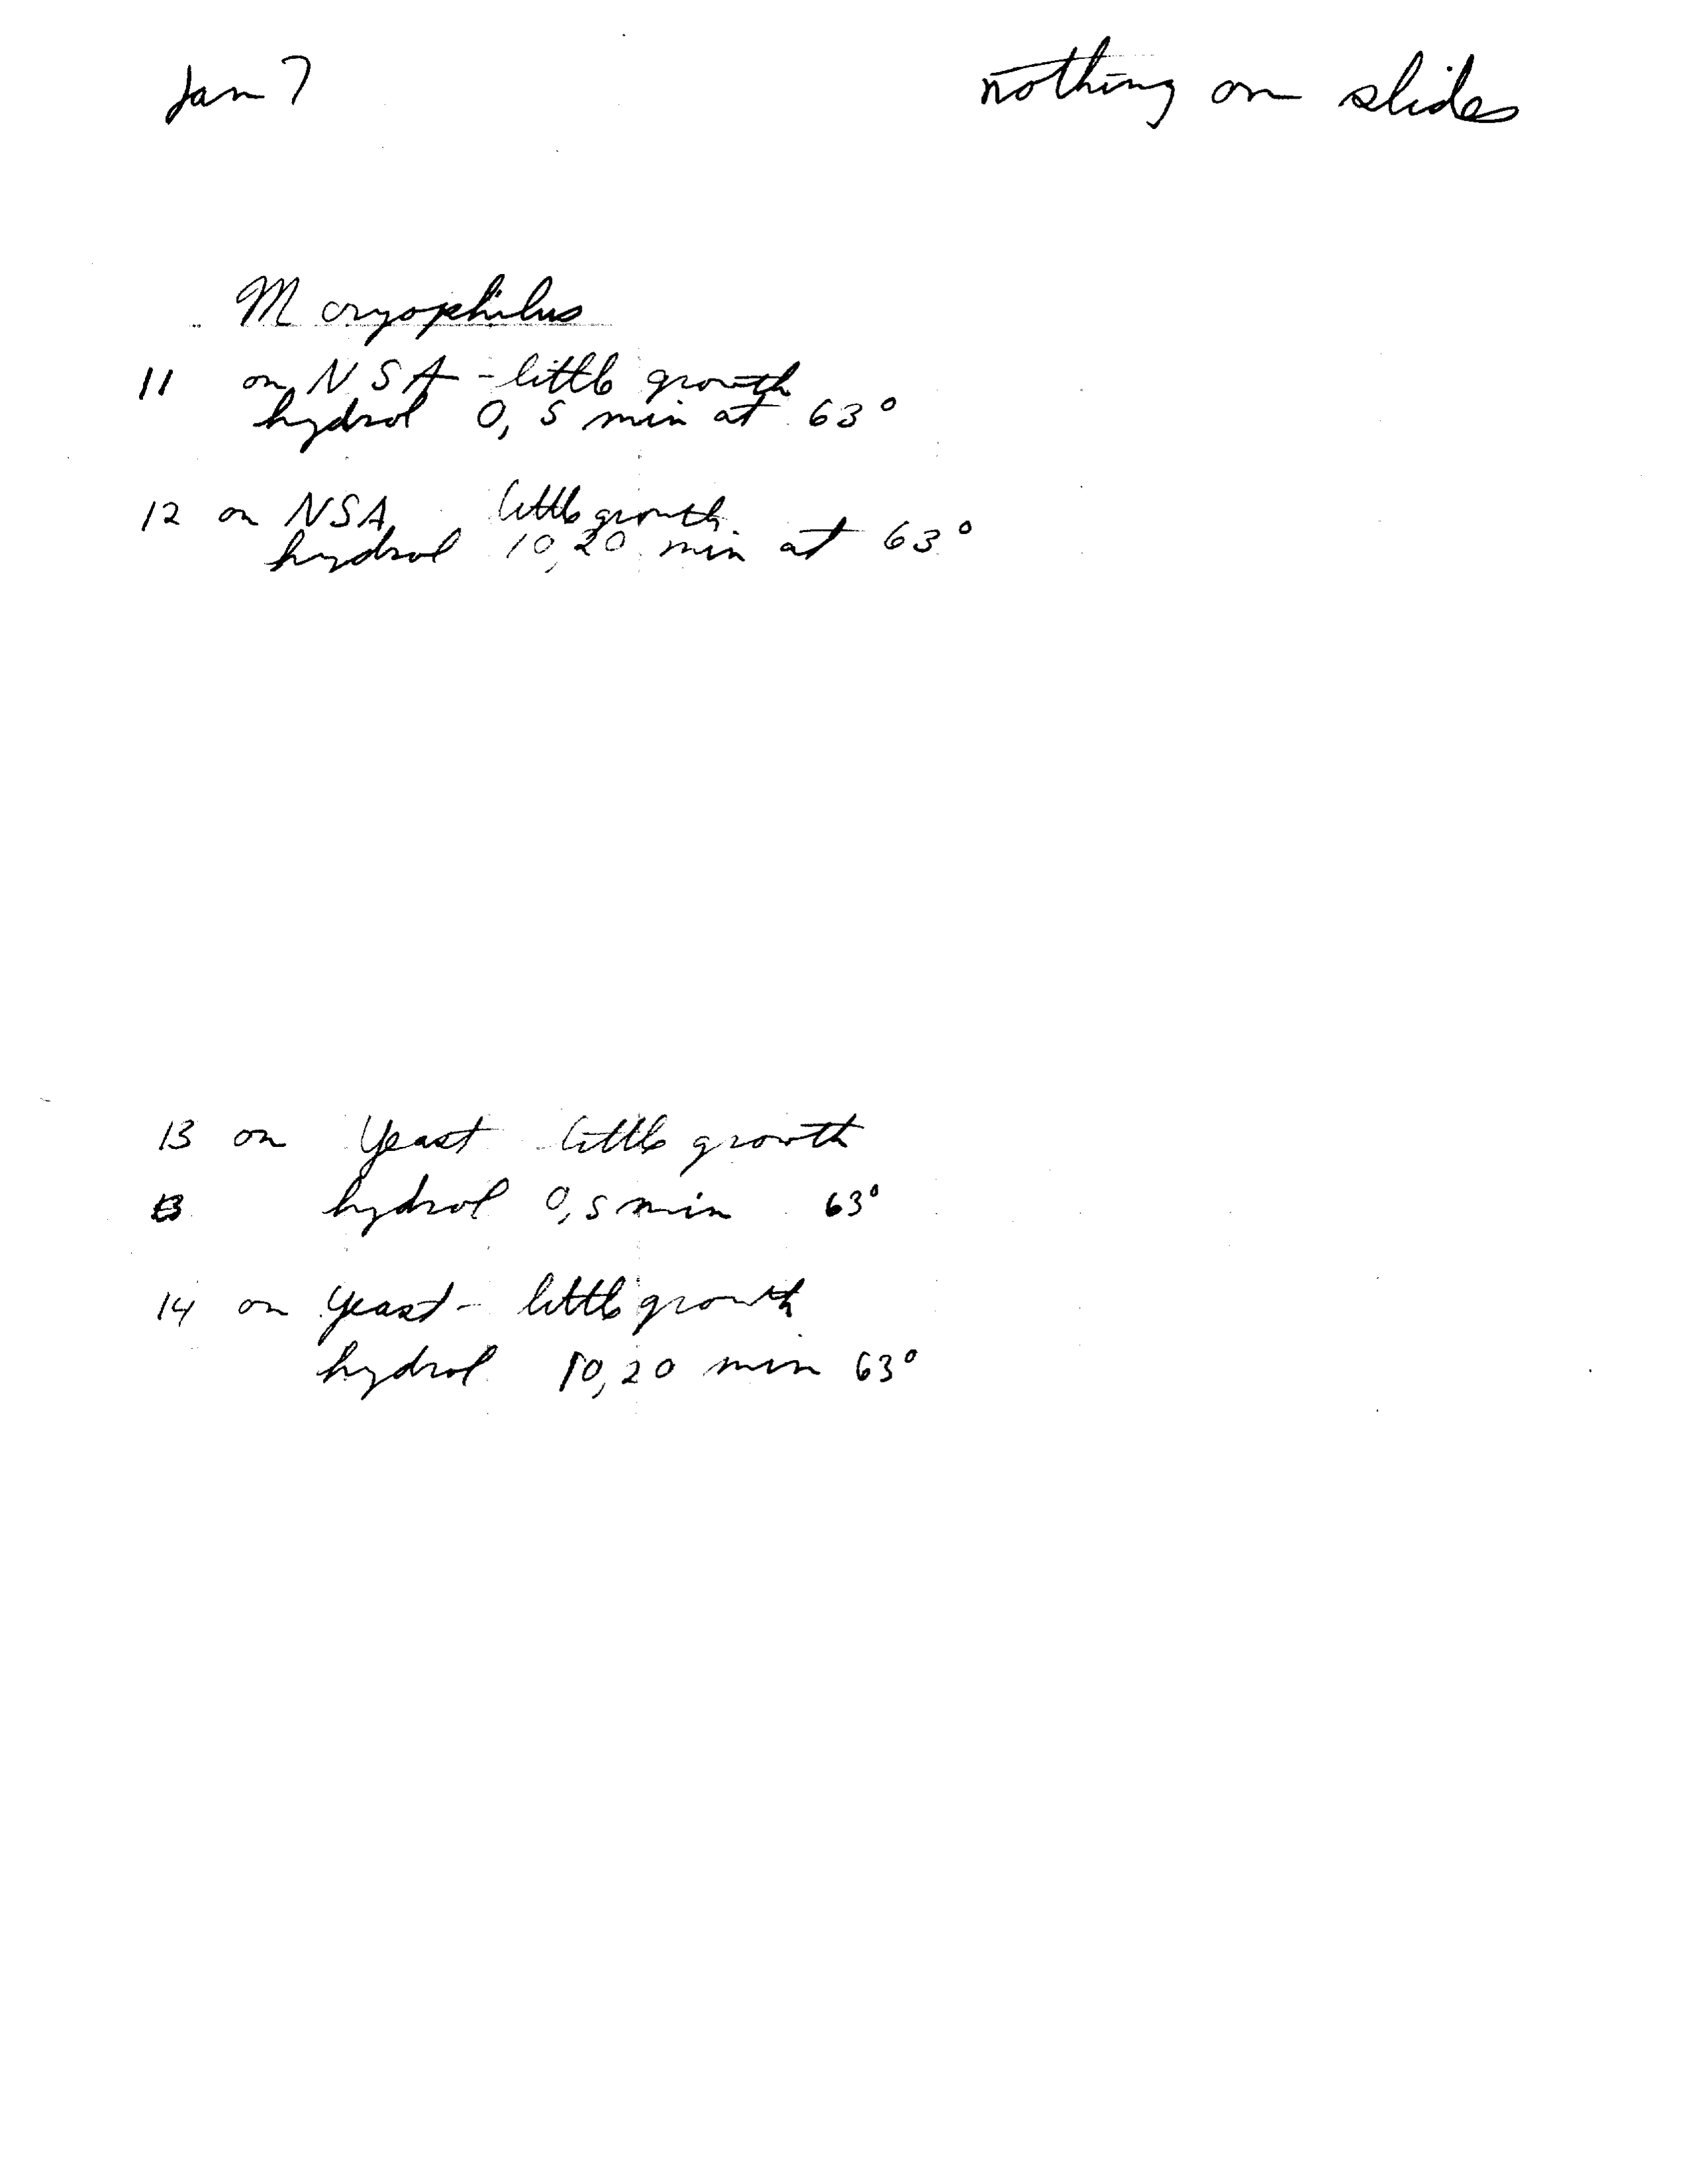 Jan 7 nothing on slides
M cryophilus
11 on NSA - little growth
hydrol 0, 5 min at 63°
12 on NSA little growth
hydrol 10, 20 min at 63°
13 on Yeast little growth
hydrol 0, 5 min 63°
14 on yeast - little growth
hydrol 10, 20 min 63°